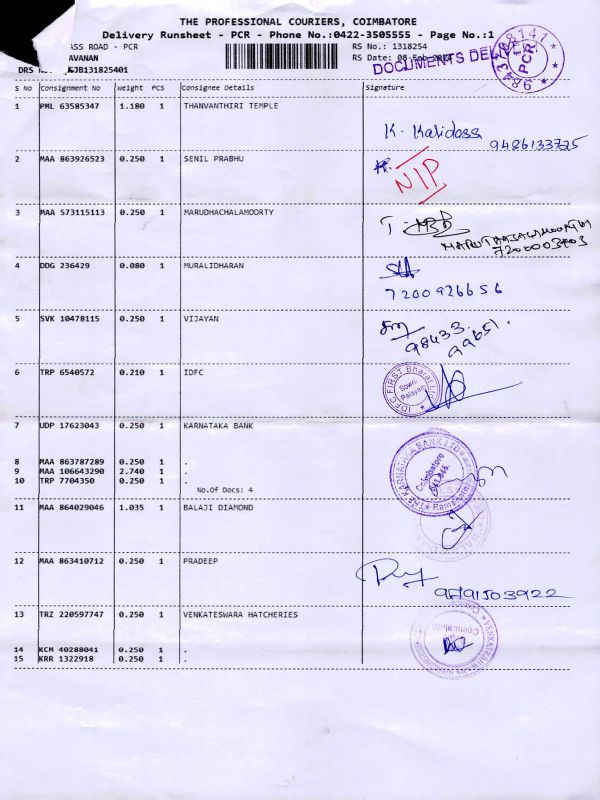 THE PROFESSIONAL COURIERS, COIMBATORE
Delivery Runsheet - PCR - Phone No.:0422-3505555 - Page No.:1
ASS ROAD - PCR RS No.: 1318254
AVANAN RS Date: 08-Feb
DRS JB131825401
DOCUMENTS DEL
PCR
S No Consignment No Weight PCS Consignee Details Signature
1 PML 63585347 1.180 1 THANVANTHIRI TEMPLE
K. Kalidass
9486133725
2 MAA 863926523 0.250 1 SENIL PRABHU
NIP
3 MAA 573115113 0.250 1 MARUDHACHALAMOORTY
4 DDG 236429 0.080 1 MURALIDHARAN
7200926656
5 SVK 10478115 0.250 1 VIJAYAN
98433.
99651.
6 TRP 6540572 0.210 1 IDFC
IDFC FIRST Bharat Ltd
Sowri-
Palayam
7 UDP 17623043 0.250 1 KARNATAKA BANK
8 MAA 863787289 0.250 1 .
9 MAA 106643290 2.740 1 .
10 TRP 7704350 0.250 1 .
No.Of Docs: 4
THE KARNATAKA BANK LTD
Coimbatore
11 MAA 864029046 1.035 1 BALAJI DIAMOND
12 MAA 863410712 0.250 1 PRADEEP
9791503922
13 TRZ 220597747 0.250 1 VENKATESWARA HATCHERIES
14 KCM 40288041 0.250 1 .
15 KRR 1322918 0.250 1 .